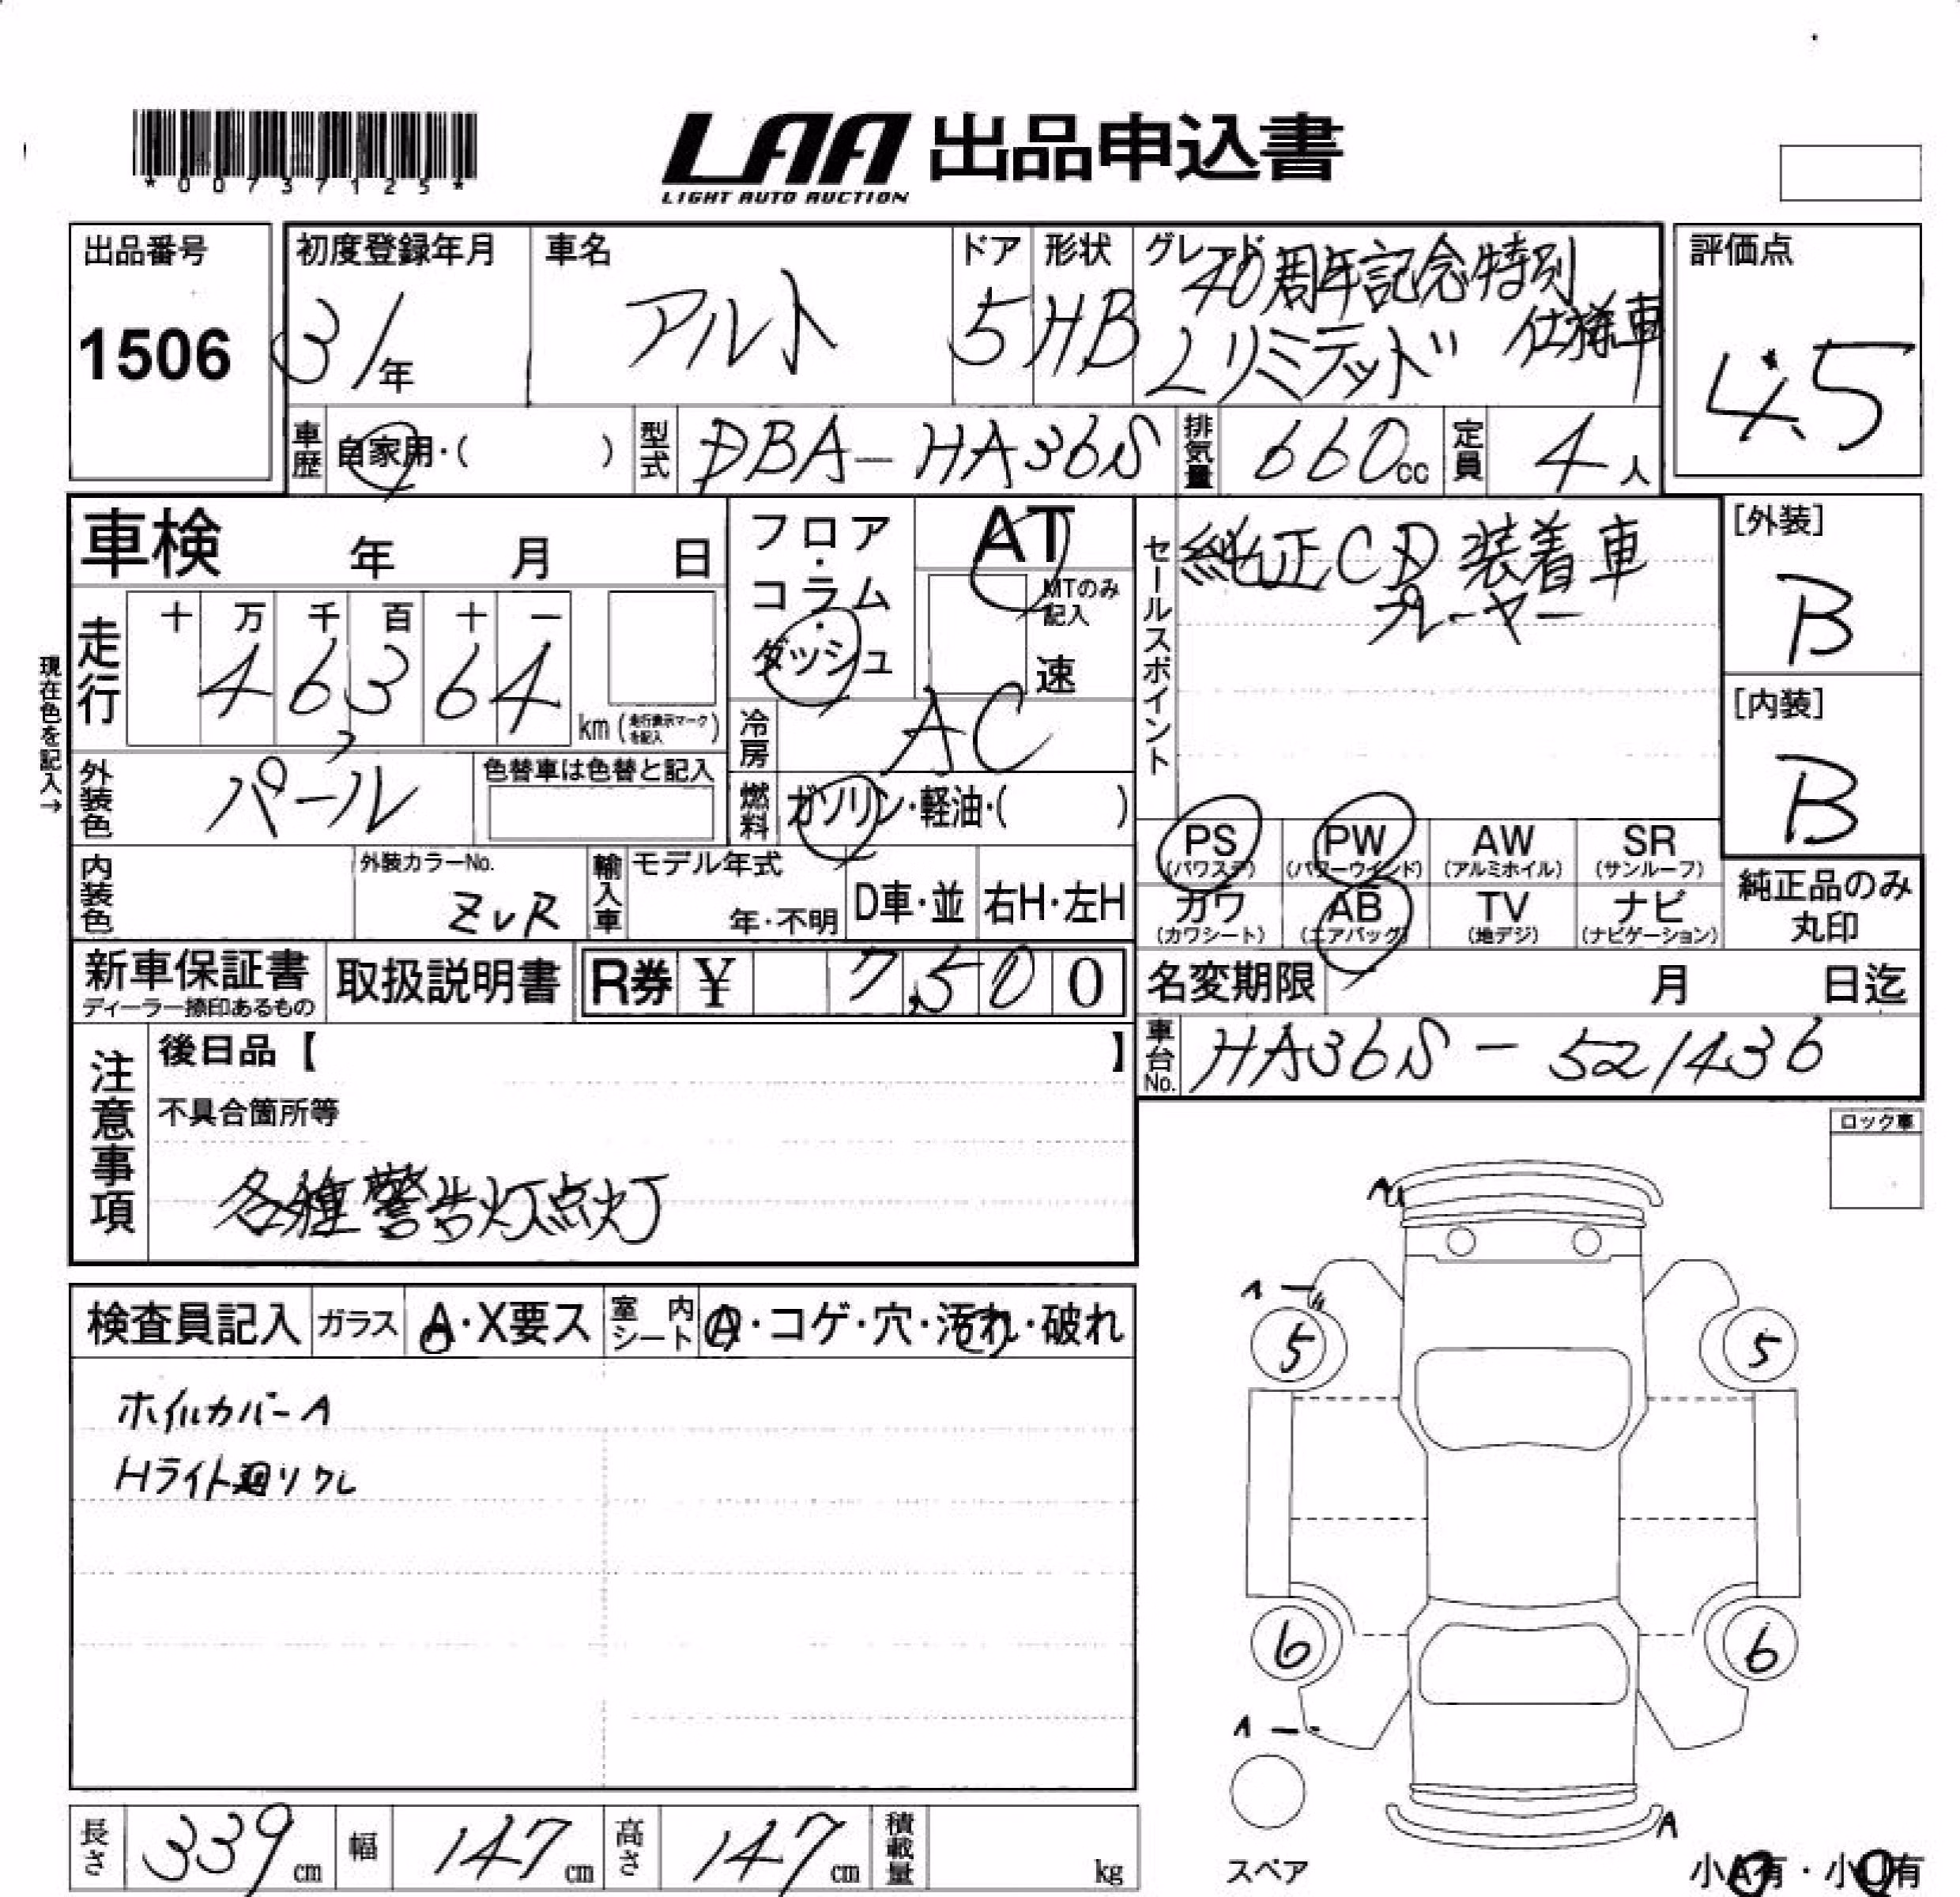 *00737125*
LAA 出品申込書
LIGHT AUTO AUCTION
出品番号
1506
初度登録年月
3/年
車名
アルト
ドア
5
形状
HB
グレード
40周年記念特別
仕様車
Lリミテッド
評価点
4.5
車歴
自家用・( )
型式
DBA-HA36S
排気量
660cc
定員
4人
車検 年 月 日
フロア・コラム・ダッシュ
AT
MTのみ記入
速
セールスポイント
純正CD装着車
プレーヤー
[外装]
B
[内装]
B
現在色を記入→
走行
十 万 千 百 十 一
4 6 3 6 4
km (走行表示マークを記入)
冷房
AC
外装色
パール
色替車は色替と記入
燃料
ガソリン・軽油・( )
PS (パワステ)
PW (パワーウインド)
AW (アルミホイル)
SR (サンルーフ)
カワ (カワシート)
AB (エアバッグ)
TV (地デジ)
ナビ (ナビゲーション)
純正品のみ丸印
内装色
外装カラーNo.
ZVR
輸入車
モデル年式
年・不明
D車・並
右H・左H
新車保証書
ディーラー捺印あるもの
取扱説明書
R券 ¥ 7,500
名変期限 月 日迄
車台No.
HA36S-521436
注意事項
後日品【 】
不具合箇所等
各種警告灯点灯
ロック車
検査員記入
ガラス
A・X要ス
室内シート
A・コゲ・穴・汚れ・破れ
ホイルカバーA
Hライト廻りクレ
A
A
5
5
6
6
A
A
スペア
小A有・小U有
長さ 339cm
幅 147cm
高さ 147cm
積載量 kg